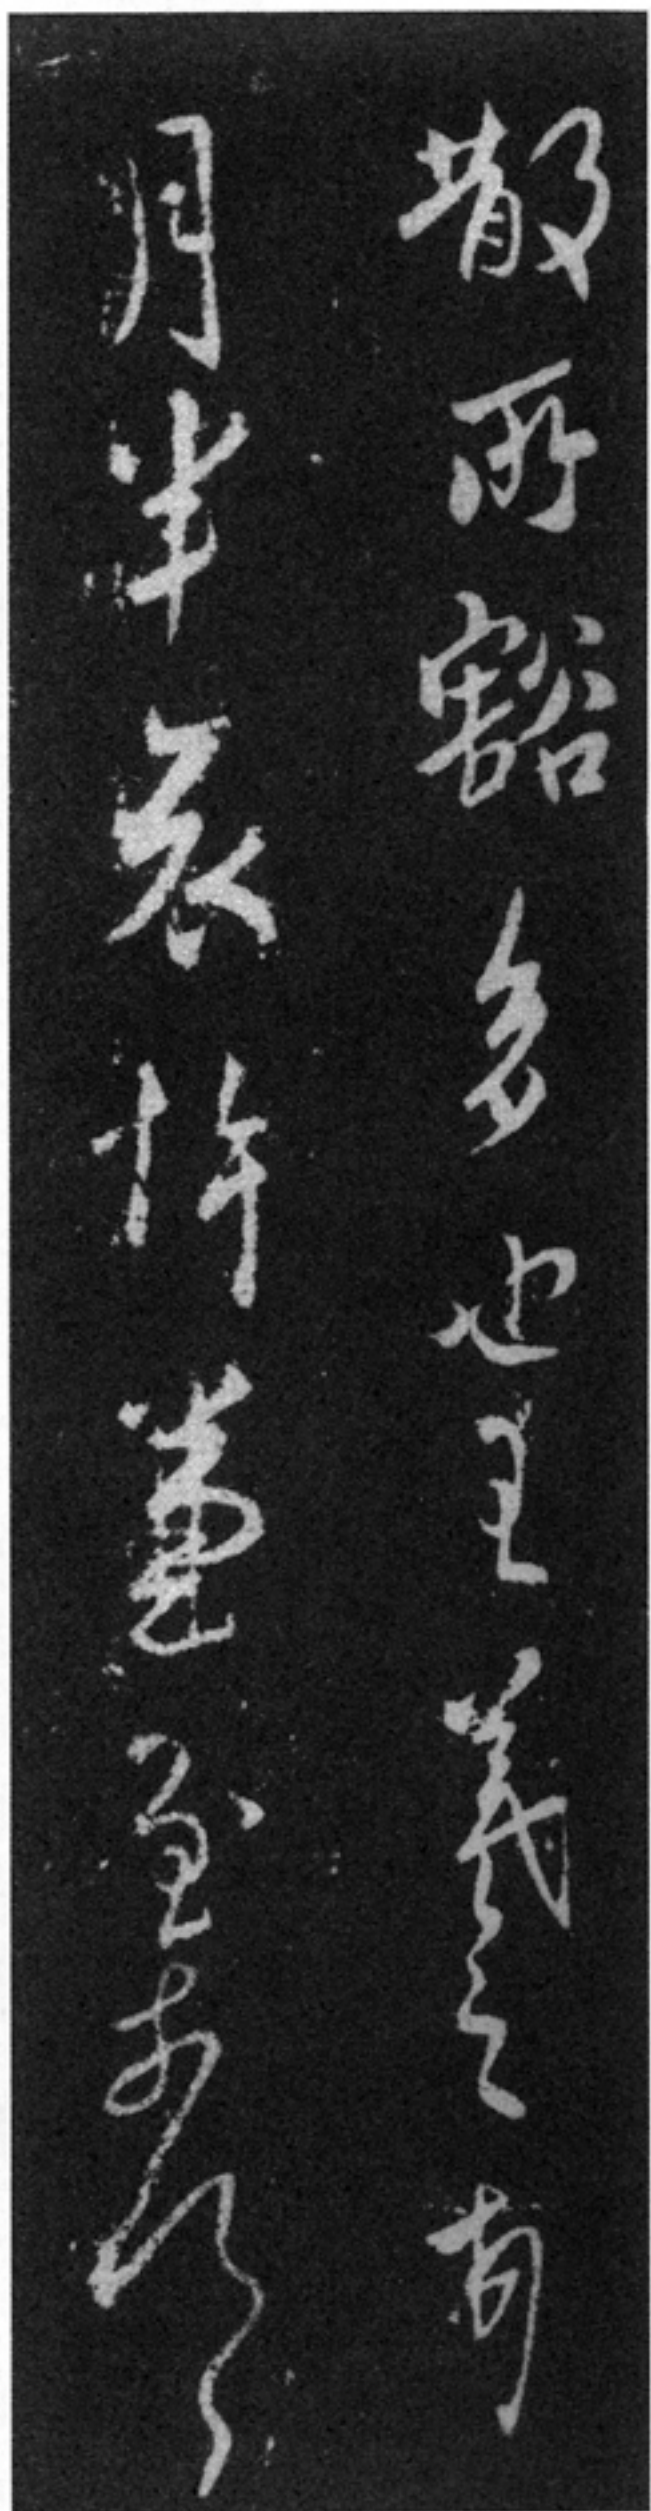 散所豁多也王羲之
月半哀悼兼至奈何